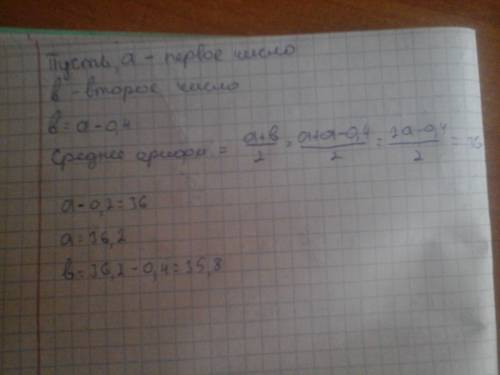 Пусть, a - первое число
b - второе число
b = a - 0,4
Среднее арифм = (a+b)/2 = (a+a-0,4)/2 = (2a-0,4)/2 = 36
a - 0,2 = 36
a = 36,2
b = 36,2 - 0,4 = 35,8